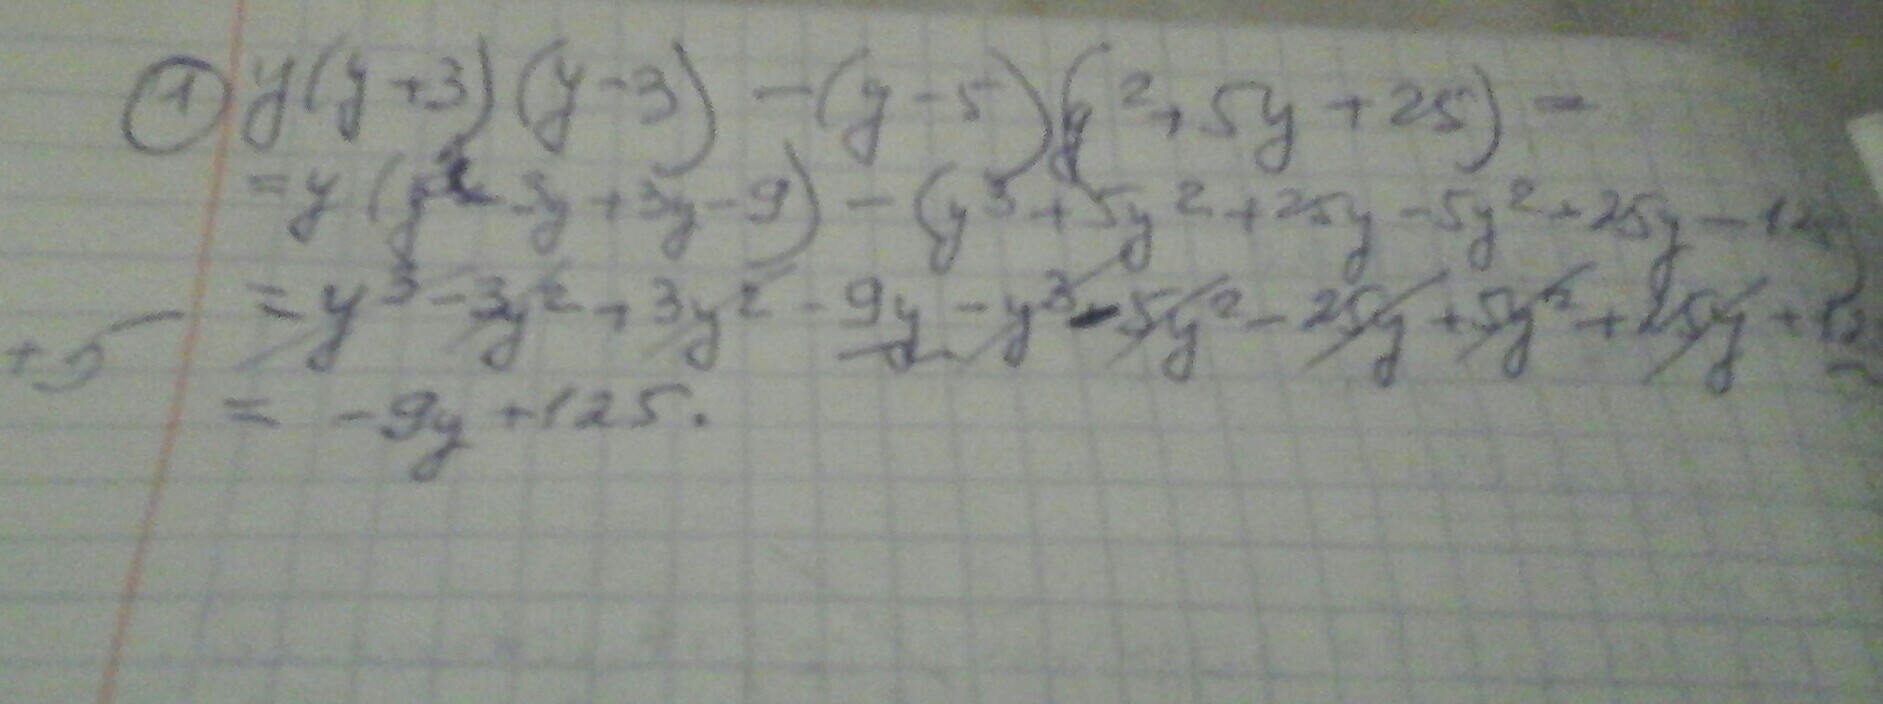 ① y(y+3)(y-3) - (y-5)(y²+5y+25) =
= y(y²-3y+3y-9) - (y³+5y²+25y-5y²-25y-12
= y³-3y²+3y²-9y-y³-5y²-25y+5y²+25y+12
= -9y+125.